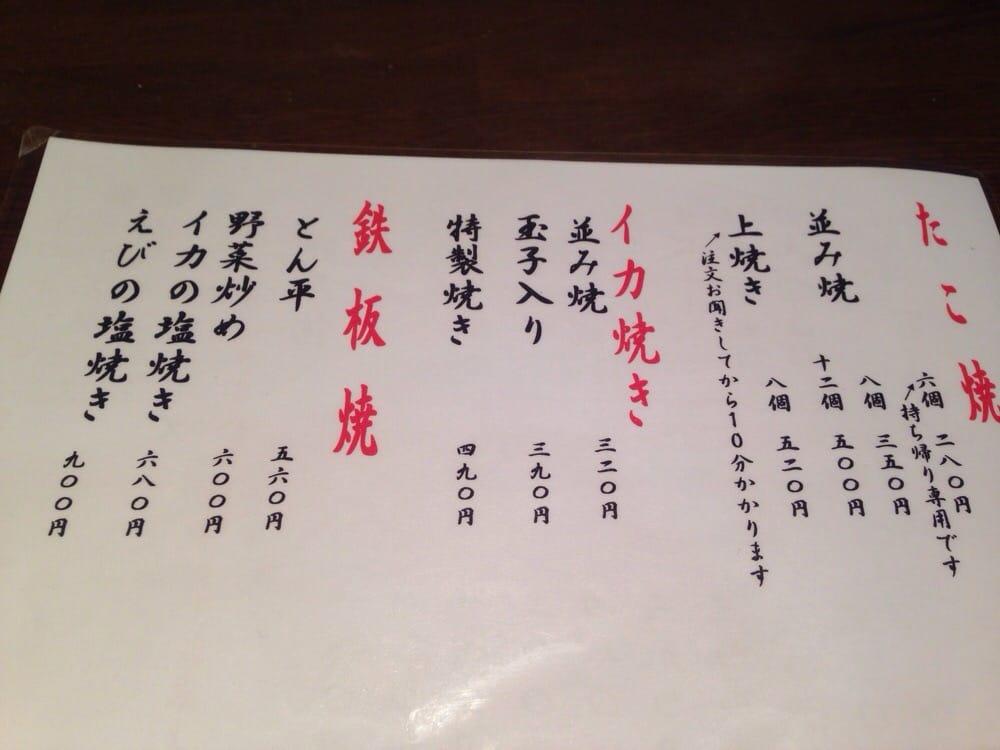 たこ焼
六個 二八〇円
↗持ち帰り専用です
並み焼 八個 三五〇円
十二個 五〇〇円
上焼き 八個 五二〇円
↗注文お聞きしてから10分かかります
イカ焼き
並み焼 三二〇円
玉子入り 三九〇円
特製焼き 四九〇円
鉄板焼
とん平 五六〇円
野菜炒め 六〇〇円
イカの塩焼き 六八〇円
えびの塩焼き 九〇〇円